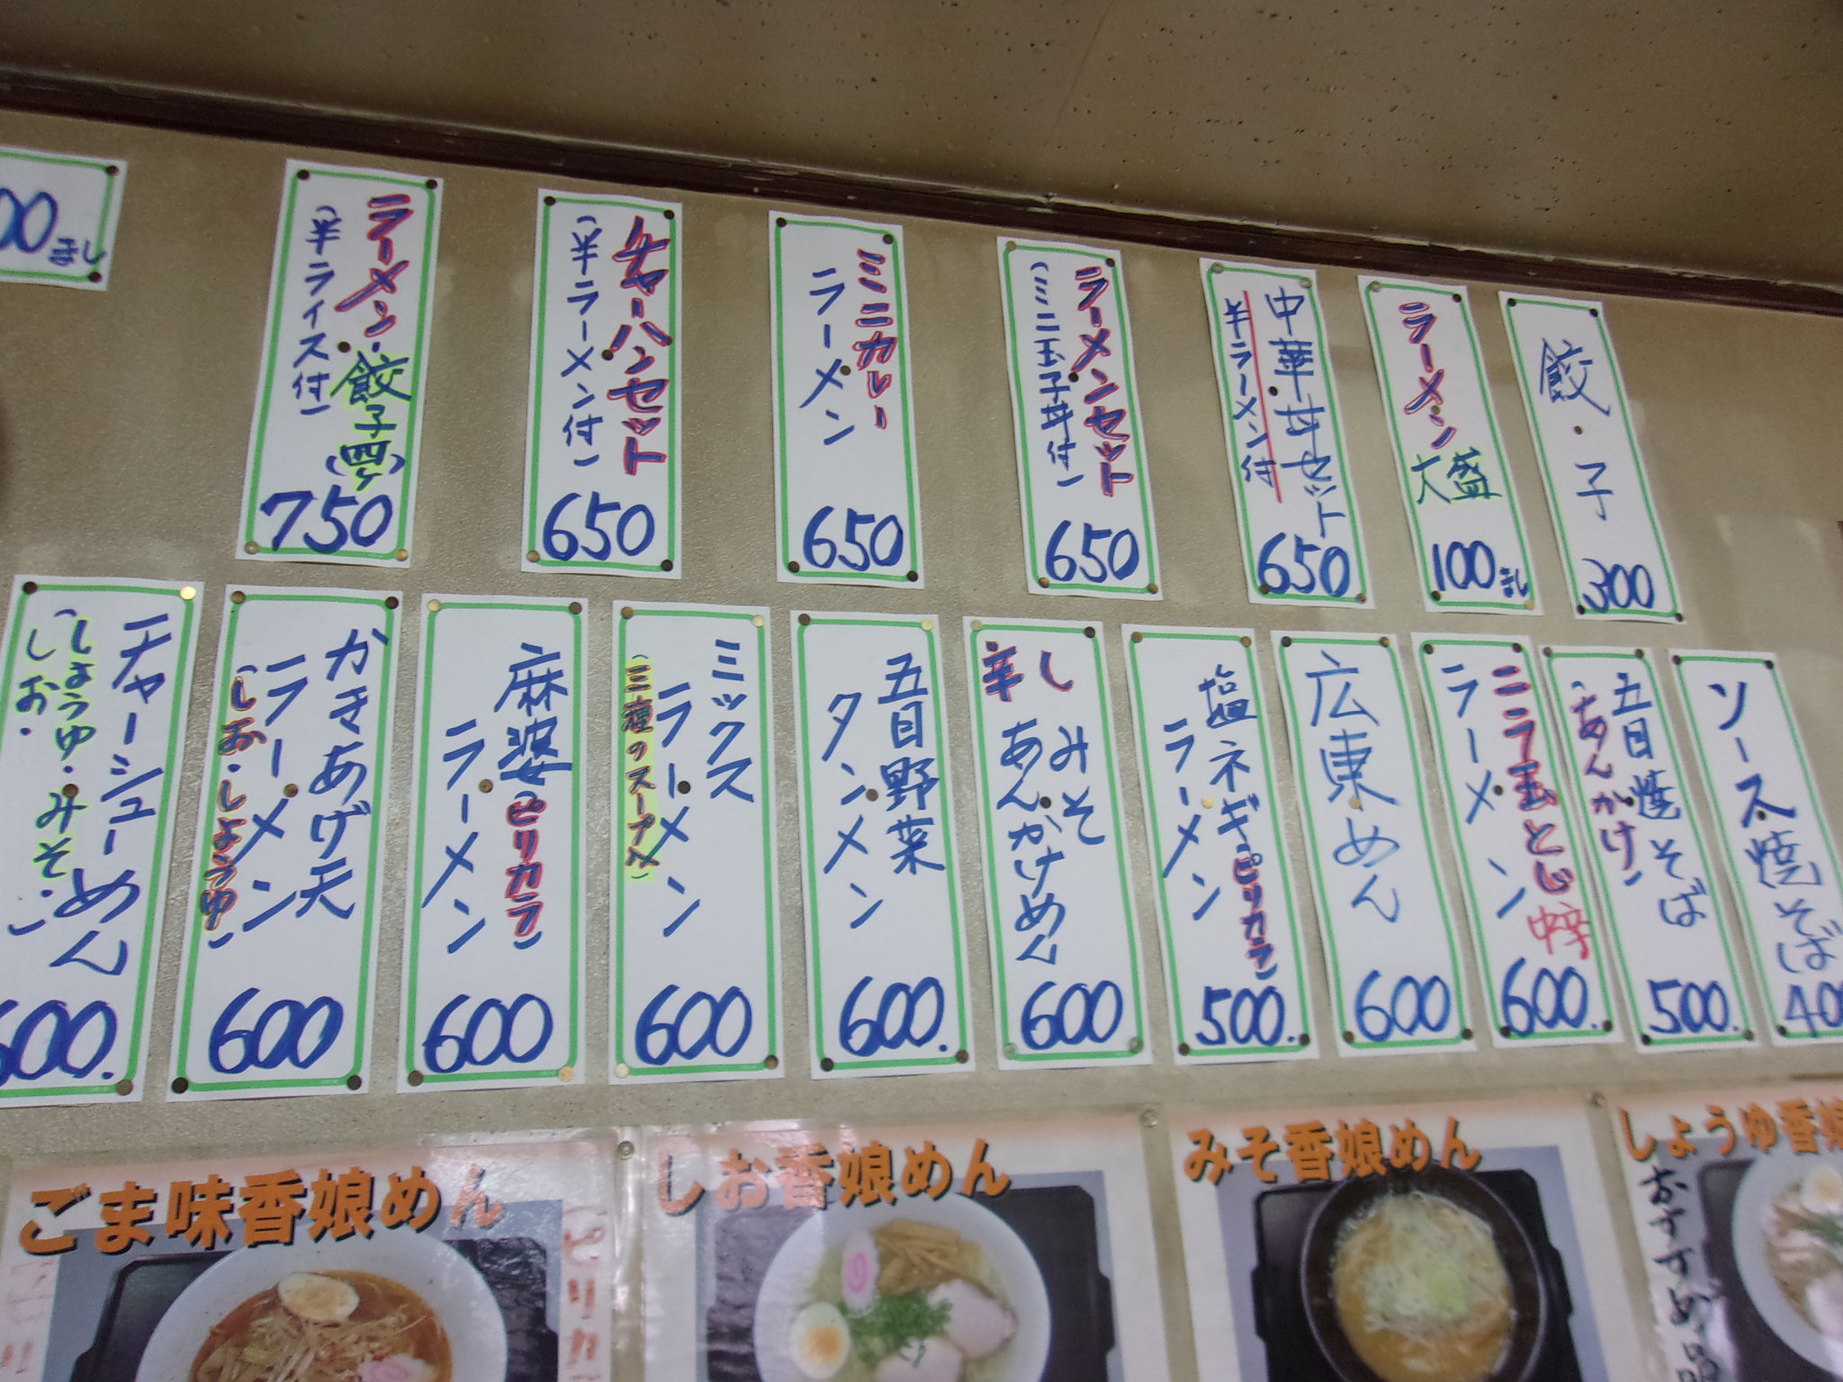 00まし
ラーメン・餃子(四ヶ)
(半ライス付)
750
チャーハンセット
(半ラーメン付)
650
ミニカレー
ラーメン
650
ラーメンセット
(ミニ玉子丼付)
650
中華丼セット
半ラーメン付
650
ラーメン大盛
100まし
餃・子
300
チャーシューめん
(しょうゆ・みそ・
しお・)
600.
かきあげ天
ラーメン
(しお・しょうゆ)
600
麻婆(ピリカラ)
ラーメン
600
ミックス
ラーメン
(三種のスープ入)
600
五目野菜
タンメン
600.
辛し
みそ
あんかけめん
600
塩ネギ(ピリカラ)
ラーメン
500.
広東めん
600
ニラ玉とじ中辛
ラーメン
600.
五目焼そば
(あんかけ)
500.
ソース焼そば
40
ごま味香娘めん
しお香娘めん
みそ香娘めん
しょうゆ香娘
おすすめ品